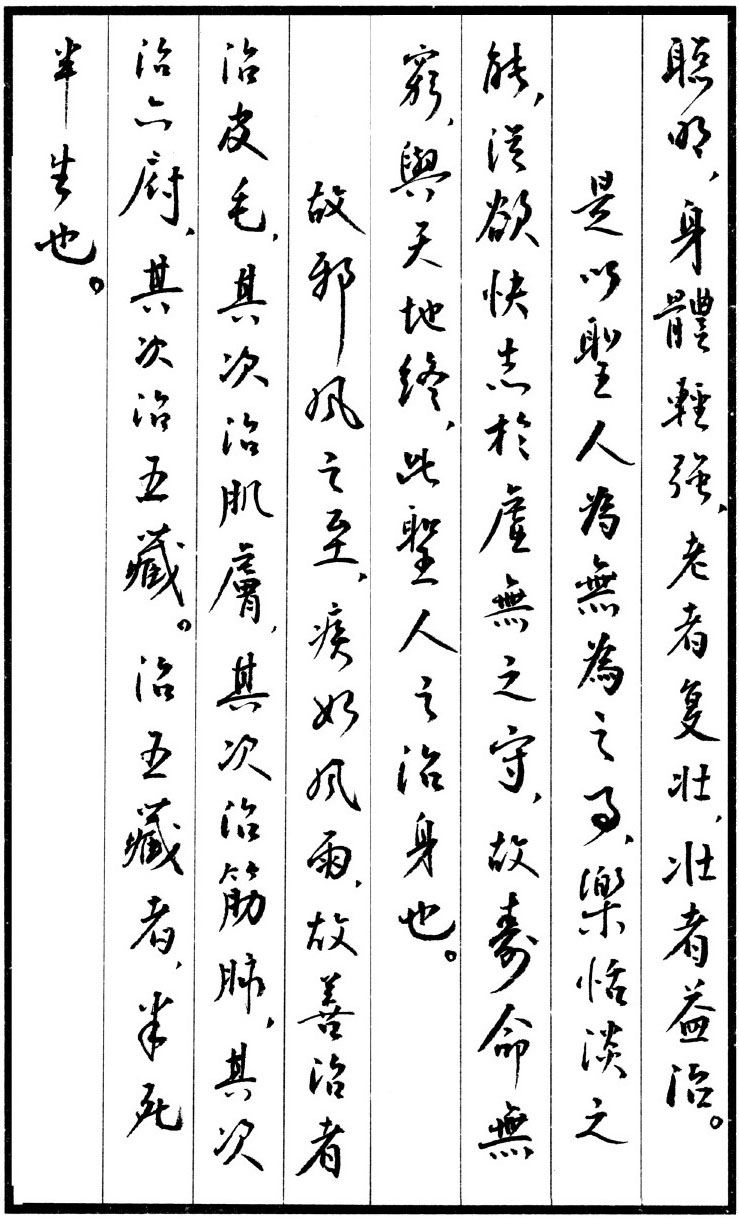 聰明，身體輕强，老者复壯，壯者益治。
是以聖人為無為之事，樂恬淡之
能，從欲快志於虛無之守，故壽命無
窮，與天地終，此聖人之治身也。
故邪風之至，疾如風雨，故善治者
治皮毛，其次治肌膚，其次治筋脉，其次
治六府，其次治五藏。治五藏者，半死
半生也。